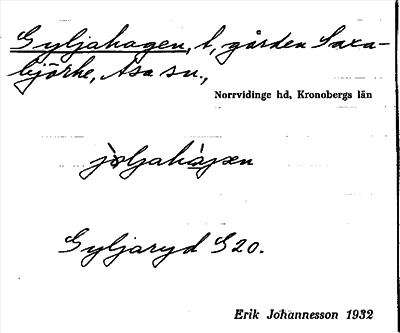 Gyljahagen, l, gården Saxa-
björke, Asa sn.,
Norrvidinge hd, Kronobergs län
Gyljaryd S 20.
Erik Johannesson 1932